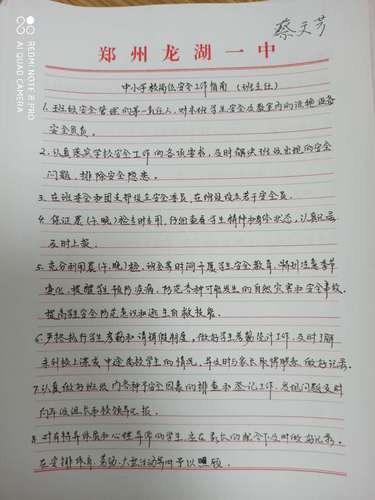 REDMI NOTE 8 PRO
AI QUAD CAMERA
蔡文芳
郑州龙湖一中
中小学校岗位安全工作指南（班主任）
1.班级安全管理的第一责任人，对本班学生安全及教室内的设施设备
安全负责。
2.认真落实学校安全工作的各项要求，及时解决班级出现的安全
问题，排除安全隐患。
3.在班委会和团支部设立安全委员，在班级设立若干安全员。
4.保证晨（午、晚）检专时专用，仔细查看学生精神和身体状态，认真记录
及时上报。
5.充分利用晨（午、晚）检、班会等时间开展学生安全教育，特别注意季节
变化，提醒学生预防疾病，防范各种可能发生的自然灾害和安全事故，
提高学生安全防范意识和逃生自救技能。
6.严格执行学生考勤和请销假制度，做好学生考勤统计工作，及时了解
未到校上课或中途离校学生的情况，并及时与家长取得联系，做好记录。
7.认真做好班级内各种不安全因素的排查和登记工作，发现问题及时
向年级组长和校领导汇报。
8.对有特异体质和心理异常的学生，应在家长的配合下及时做好记录，
在安排体育、劳动、大型活动等时予以照顾。